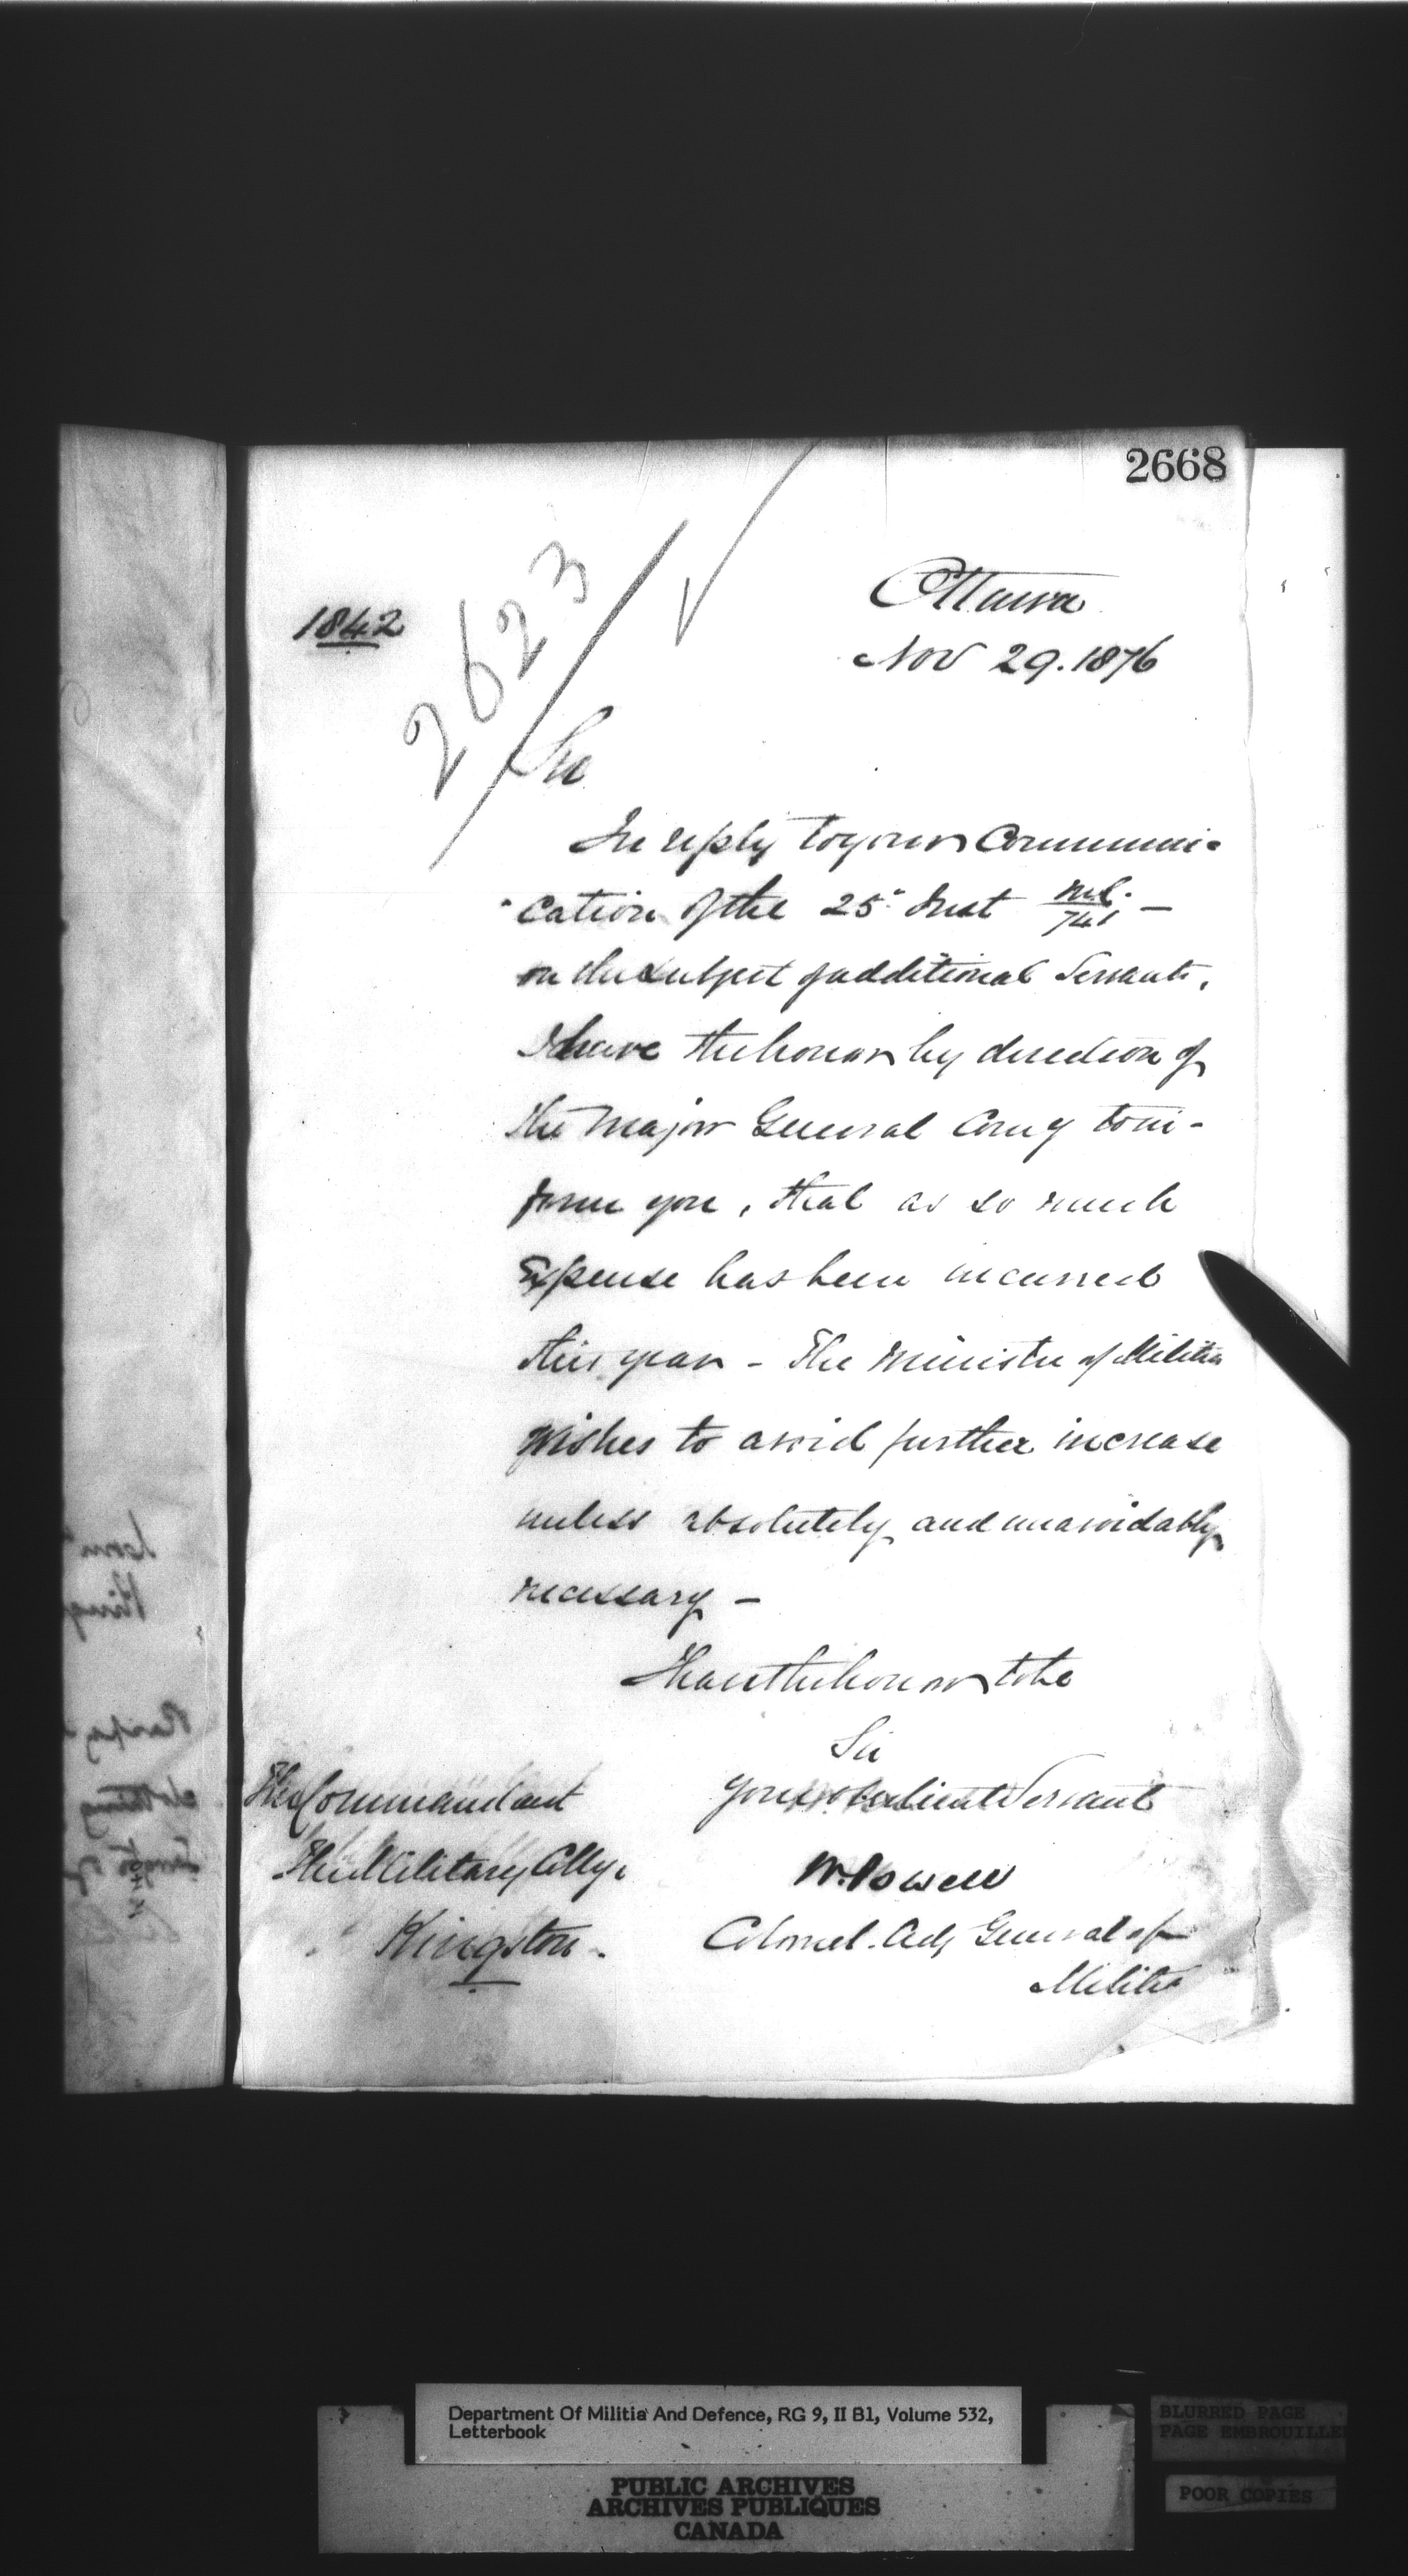 2668
2623
1842
Ottawa
Nov 29. 1876
Sir
In reply to your Communi-
cation of the 25" Inst M.C./741 -
on the subject of additional Servants,
I have the honor by direction of
the Major General Comg to in-
form you, that as so much
Expense has been incurred
this year - The Minister of Militia
wishes to avoid further increase
unless absolutely and unavoidably
necessary -
I have the honor to be
Sir
your obedient Servant
W. Powell
Colonel. Adj General of
Militia
The Commandant
The Military Collg.
Kingston.
Department Of Militia And Defence, RG 9, II B1, Volume 532,
Letterbook
PUBLIC ARCHIVES
ARCHIVES PUBLIQUES
CANADA
BLURRED PAGE
PAGE EMBROUILLE
POOR COPIES